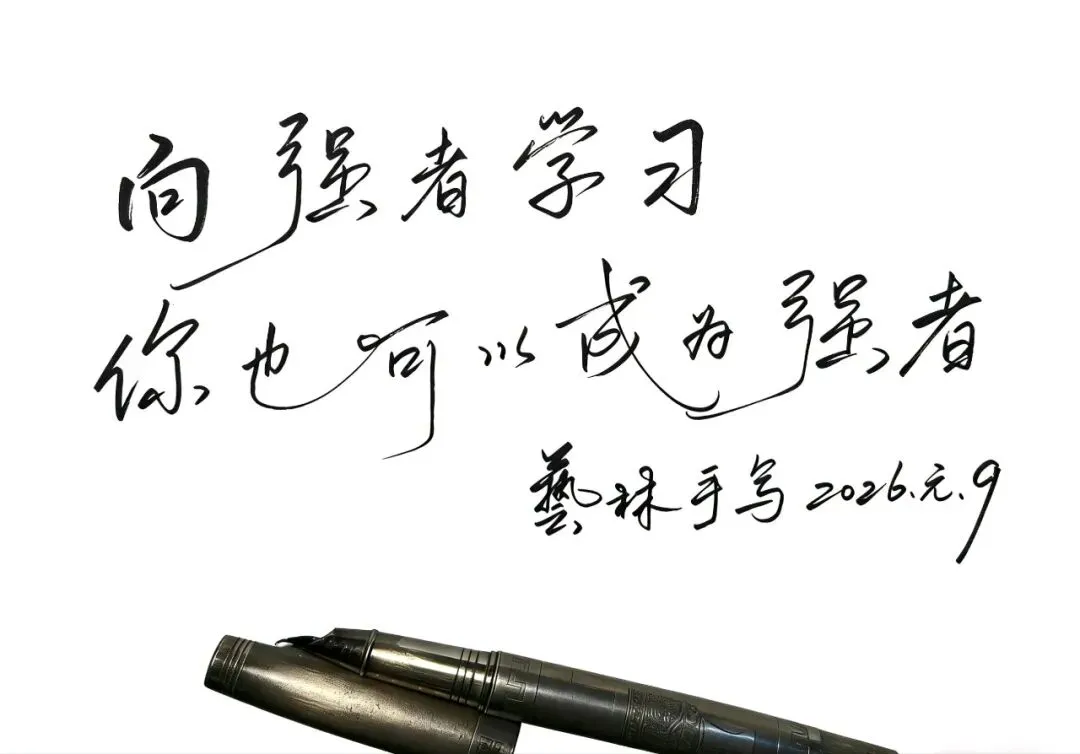 向强者学习
你也可以成为强者
藝林手写2026.元.9